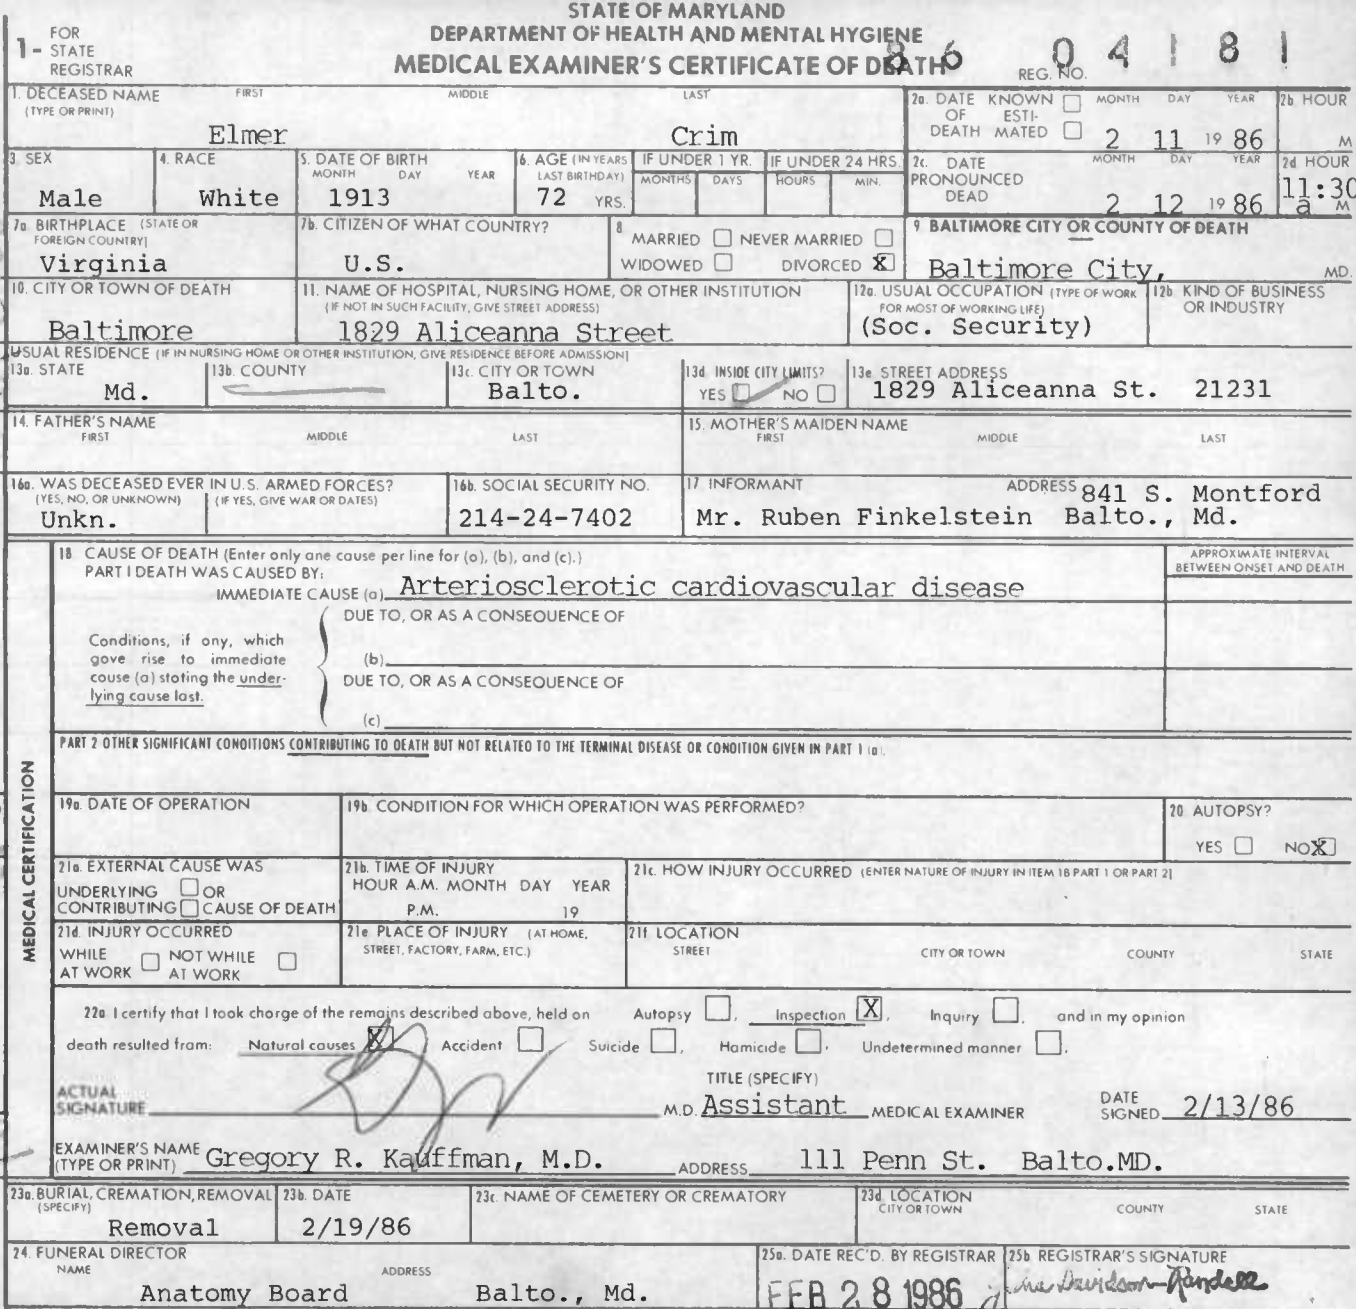 STATE OF MARYLAND
DEPARTMENT OF HEALTH AND MENTAL HYGIENE
MEDICAL EXAMINER'S CERTIFICATE OF DEATH
1- FOR STATE REGISTRAR
REG. NO. 86 04181
1. DECEASED NAME (TYPE OR PRINT) FIRST MIDDLE LAST
Elmer Crim
2a. DATE OF DEATH KNOWN ESTI-MATED MONTH DAY YEAR
2 11 19 86
2b HOUR
M
3 SEX
Male
4. RACE
White
5. DATE OF BIRTH MONTH DAY YEAR
1913
6. AGE (IN YEARS LAST BIRTHDAY)
72 YRS.
IF UNDER 1 YR. MONTHS DAYS
IF UNDER 24 HRS. HOURS MIN.
2c. DATE PRONOUNCED DEAD MONTH DAY YEAR
2 12 19 86
2d HOUR
11:30 a M
7a. BIRTHPLACE (STATE OR FOREIGN COUNTRY)
Virginia
7b. CITIZEN OF WHAT COUNTRY?
U.S.
8 MARRIED NEVER MARRIED
WIDOWED DIVORCED X
9 BALTIMORE CITY OR COUNTY OF DEATH
Baltimore City, MD.
10. CITY OR TOWN OF DEATH
Baltimore
11. NAME OF HOSPITAL, NURSING HOME, OR OTHER INSTITUTION
(IF NOT IN SUCH FACILITY, GIVE STREET ADDRESS)
1829 Aliceanna Street
12a. USUAL OCCUPATION (TYPE OF WORK FOR MOST OF WORKING LIFE)
(Soc. Security)
12b KIND OF BUSINESS OR INDUSTRY
USUAL RESIDENCE (IF IN NURSING HOME OR OTHER INSTITUTION, GIVE RESIDENCE BEFORE ADMISSION)
13a. STATE
Md.
13b. COUNTY
13c. CITY OR TOWN
Balto.
13d INSIDE CITY LIMITS?
YES NO
13e STREET ADDRESS
1829 Aliceanna St. 21231
14. FATHER'S NAME
FIRST MIDDLE LAST
15. MOTHER'S MAIDEN NAME
FIRST MIDDLE LAST
16a. WAS DECEASED EVER IN U.S. ARMED FORCES?
(YES, NO, OR UNKNOWN) (IF YES, GIVE WAR OR DATES)
Unkn.
16b. SOCIAL SECURITY NO.
214-24-7402
17 INFORMANT ADDRESS
841 S. Montford
Mr. Ruben Finkelstein Balto., Md.
MEDICAL CERTIFICATION
18 CAUSE OF DEATH (Enter only one cause per line for (a), (b), and (c).)
PART I DEATH WAS CAUSED BY:
IMMEDIATE CAUSE (a) Arteriosclerotic cardiovascular disease
APPROXIMATE INTERVAL BETWEEN ONSET AND DEATH
DUE TO, OR AS A CONSEQUENCE OF
Conditions, if any, which
gave rise to immediate
cause (a) stating the under-
lying cause last.
(b)
DUE TO, OR AS A CONSEQUENCE OF
(c)
PART 2 OTHER SIGNIFICANT CONDITIONS CONTRIBUTING TO DEATH BUT NOT RELATED TO THE TERMINAL DISEASE OR CONDITION GIVEN IN PART 1 (a).
19a. DATE OF OPERATION
19b. CONDITION FOR WHICH OPERATION WAS PERFORMED?
20 AUTOPSY?
YES NO X
21a. EXTERNAL CAUSE WAS
UNDERLYING OR
CONTRIBUTING CAUSE OF DEATH
21b. TIME OF INJURY
HOUR A.M. MONTH DAY YEAR
P.M. 19
21c. HOW INJURY OCCURRED (ENTER NATURE OF INJURY IN ITEM 18 PART 1 OR PART 2)
21d. INJURY OCCURRED
WHILE AT WORK NOT WHILE AT WORK
21e PLACE OF INJURY (AT HOME, STREET, FACTORY, FARM, ETC.)
21f LOCATION
STREET CITY OR TOWN COUNTY STATE
22a I certify that I took charge of the remains described above, held on Autopsy , Inspection X , Inquiry , and in my opinion
death resulted from: Natural causes X Accident Suicide , Homicide , Undetermined manner .
ACTUAL SIGNATURE M.D.
TITLE (SPECIFY)
Assistant MEDICAL EXAMINER
DATE SIGNED 2/13/86
EXAMINER'S NAME (TYPE OR PRINT) Gregory R. Kauffman, M.D. ADDRESS 111 Penn St. Balto.MD.
23a. BURIAL, CREMATION, REMOVAL (SPECIFY)
Removal
23b. DATE
2/19/86
23c. NAME OF CEMETERY OR CREMATORY
23d. LOCATION
CITY OR TOWN COUNTY STATE
24. FUNERAL DIRECTOR
NAME ADDRESS
Anatomy Board Balto., Md.
25a. DATE REC'D. BY REGISTRAR
FEB 28 1986
25b. REGISTRAR'S SIGNATURE
Davidson-Randall